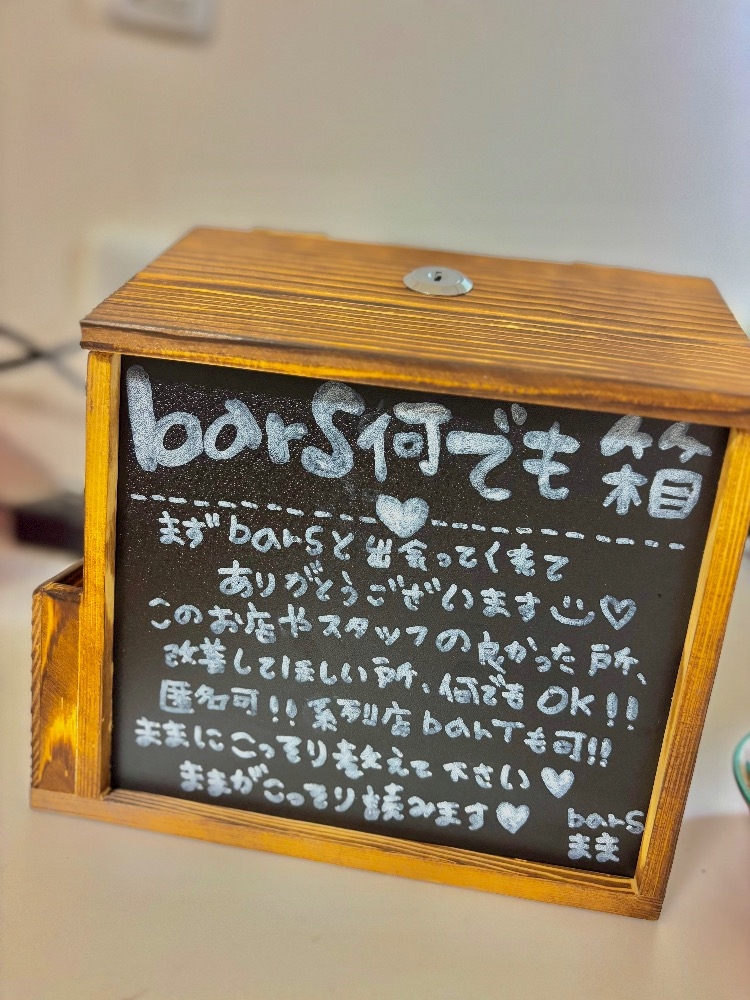 barS何でも箱
まずbarSと出会ってくれて
ありがとうございます
このお店やスタッフの良かった所、
改善してほしい所、何でもOK!!
匿名可!!系列店barTも可!!
ままにこっそり教えて下さい
ままがこっそり読みます
barS
まま